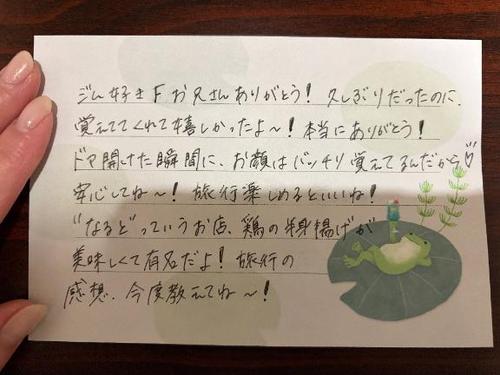 ジム好きFお兄さんありがとう! 久しぶりだったのに、
覚えててくれて嬉しかったよ〜! 本当にありがとう!
ドア開けた瞬間に、お顔はバッチリ覚えてるんだから♡
安心してね〜! 旅行楽しめるといいね!
"なると"っていうお店、鶏の半身揚げが
美味しくて有名だよ! 旅行の
感想、今度教えてね〜!